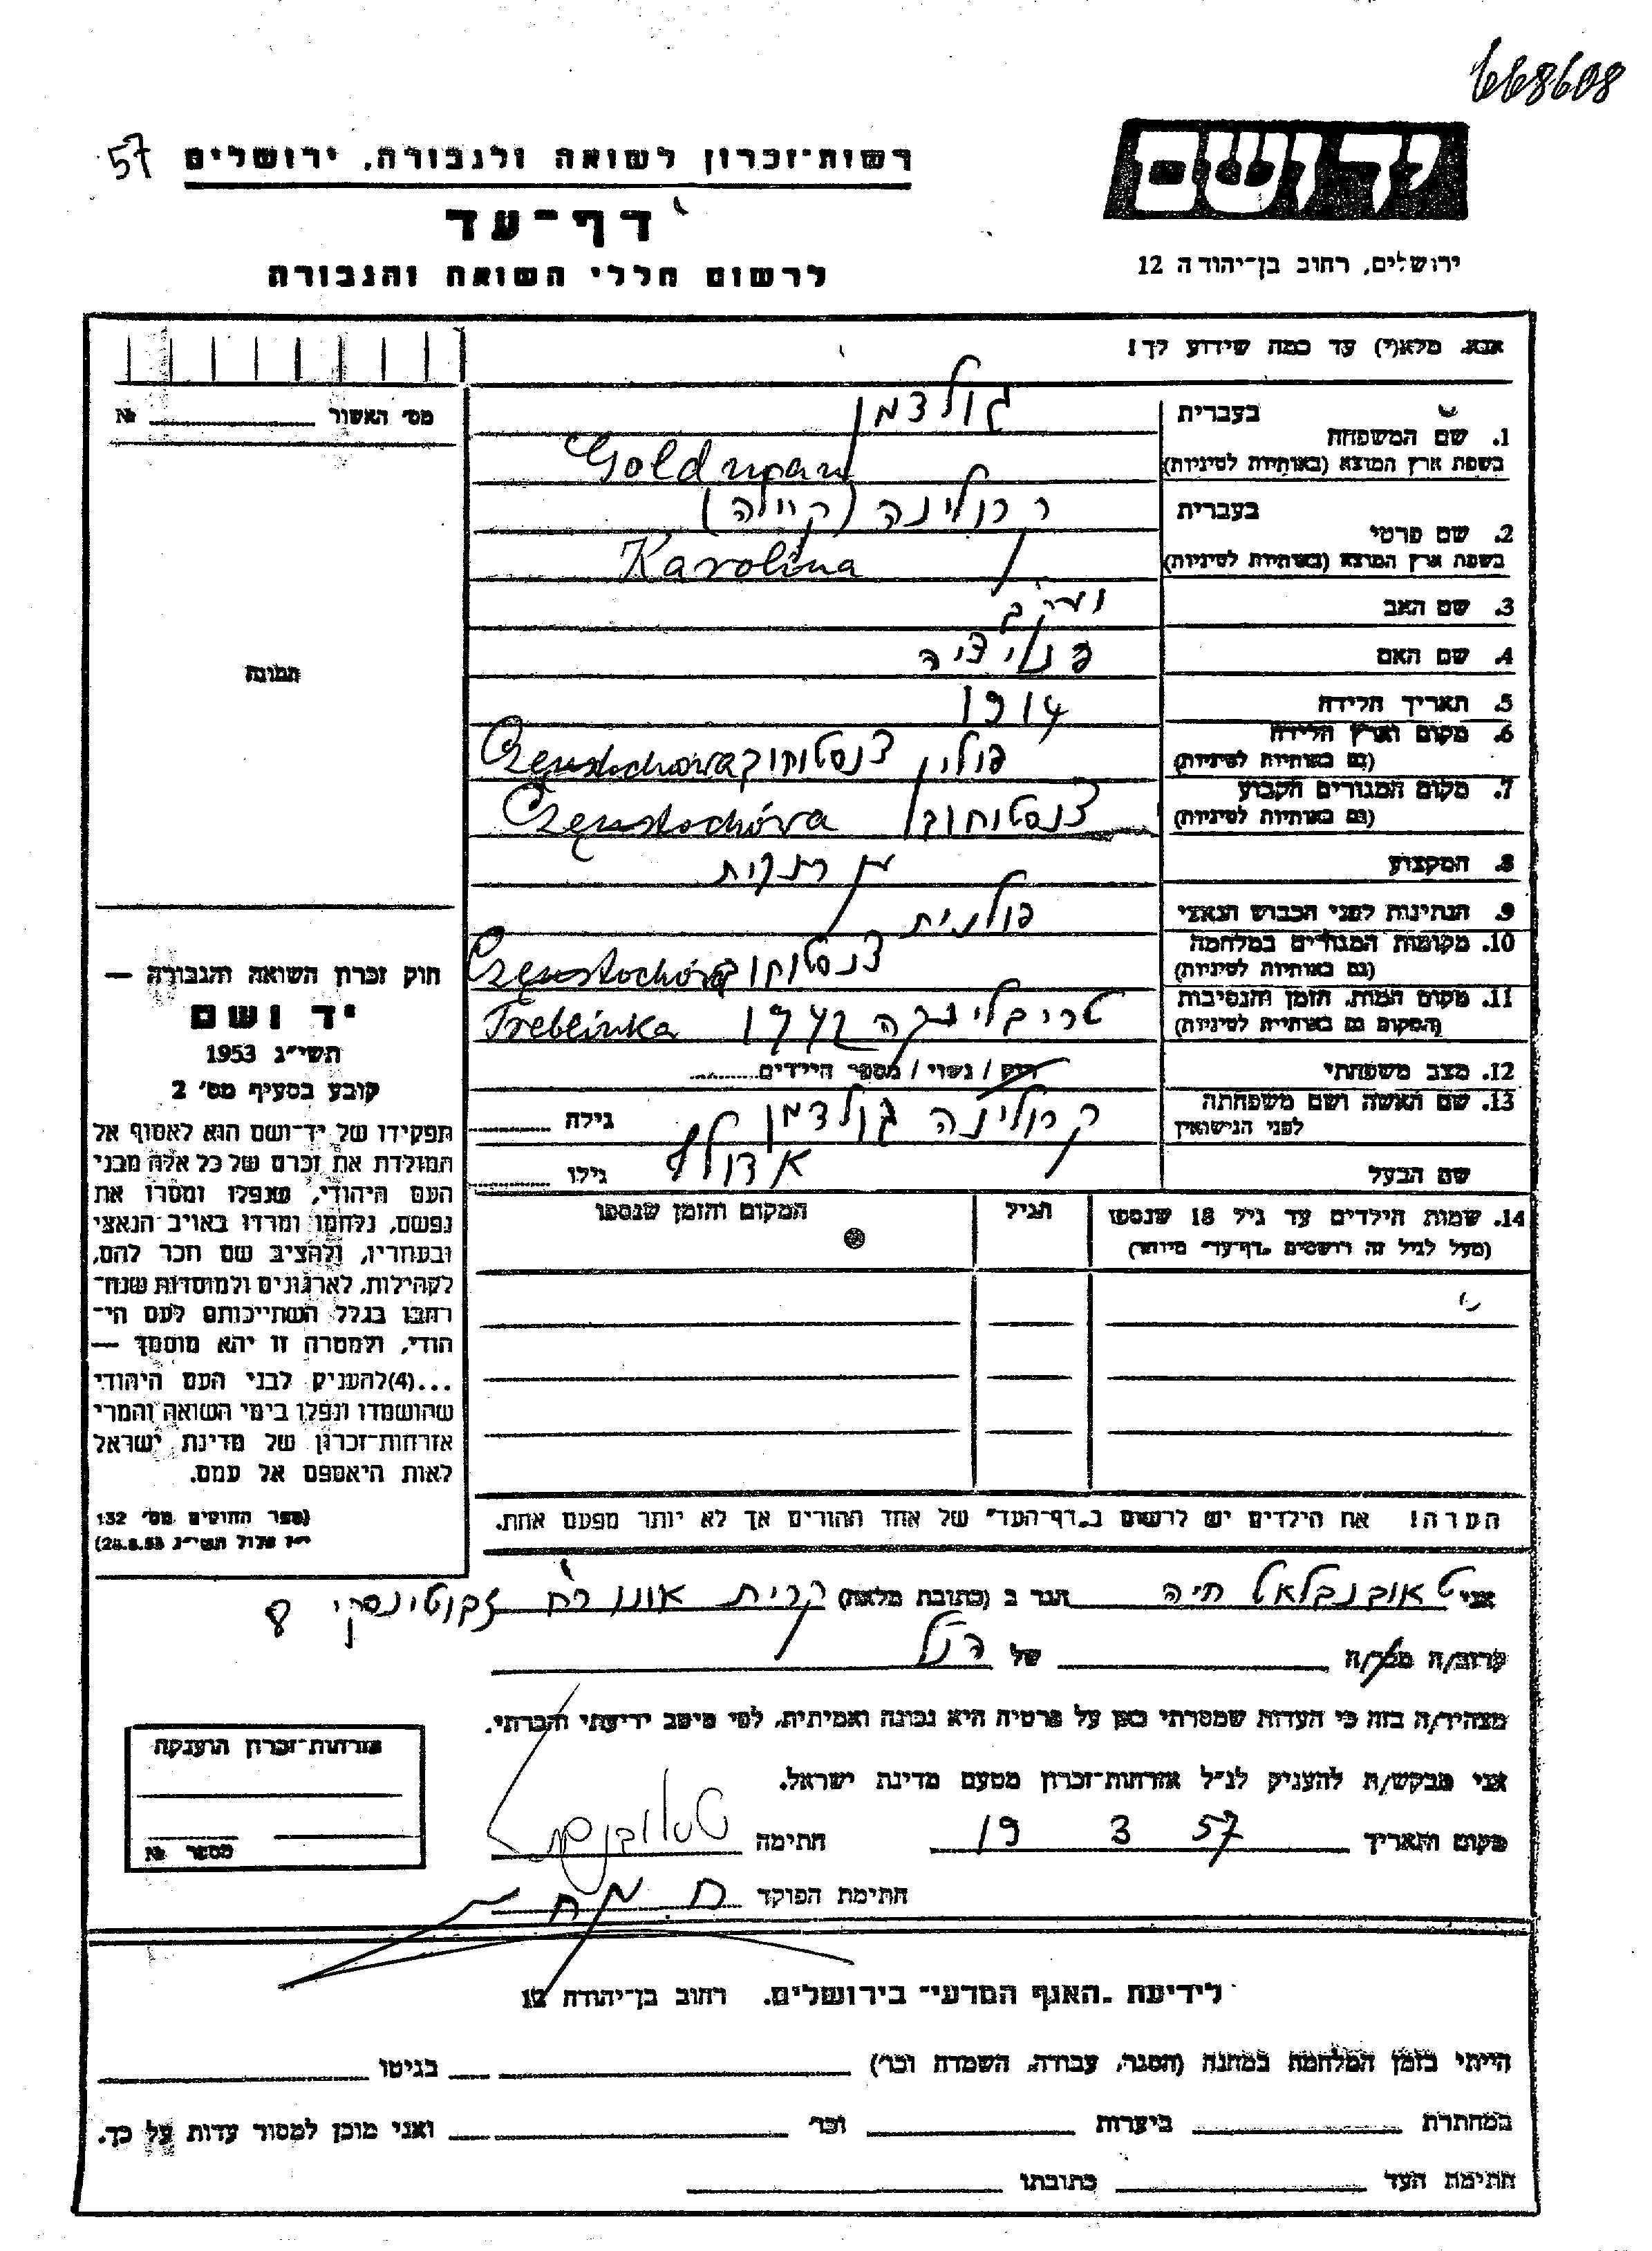 668608
ידושם
רשות־זכרון לשואה ולגבורה, ירושלים 57
דף־עד
לרשום חללי השואה והגבורה
ירושלים, רחוב בן־יהודה 12
אנא, מלא(י) עד כמה שידוע לך!
מס׳ האשור № 
1. שם המשפחה בעברית גולדמן
בשפת ארץ המוצא (באותיות לטיניות) Goldman
2. שם פרטי בעברית קרולינה (קיילה)
בשפת ארץ המוצא (באותיות לטיניות) Karolina
3. שם האב
4. שם האם
5. תאריך הלידה 1914
6. מקום וארץ הלידה (גם באותיות לטיניות) פולין צנסטוחוב Częnstochowa
7. מקום המגורים הקבוע (גם באותיות לטיניות) צנסטוחוב Częnstochówa
8. המקצוע
9. הנתינות לפני הכבוש הנאצי פולנית
10. מקומות המגורים במלחמה (גם באותיות לטיניות) צנסטוחוב Częnstochówa
11. מקום המות, הזמן והנסיבות (המקום גם באותיות לטיניות) טריבלינקה 1942 Treblinka
12. מצב משפחתי רווק / נשוי / מספר הילדים
13. שם האשה ושם משפחתה לפני הנישואין קרולינה גולדמן גילה
שם הבעל אדולף גילו
14. שמות הילדים עד גיל 18 שנספו הגיל המקום והזמן שנספו
(מעל לגיל זה רושמים „דף־עד״ מיוחד)
הערה! את הילדים יש לרשום ב„דף־העד״ של אחד ההורים אך לא יותר מפעם אחת.
תמונה
חוק זכרון השואה והגבורה —
יד ושם
תשי״ג 1953
קובע בסעיף מס׳ 2
תפקידו של יד־ושם הוא לאסוף אל
המולדת את זכרם של כל אלה מבני
העם היהודי, שנפלו ומסרו את
נפשם, נלחמו ומרדו באויב הנאצי
ובעוזריו, ולהציב שם וזכר להם,
לקהילות, לארגונים ולמוסדות שנח־
רבו בגלל השתייכותם לעם הי־
הודי, ולמטרה זו יהא מוסמך —
...(4)להעניק לבני העם היהודי
שהושמדו ונפלו בימי השואה והמרי
אזרחות־זכרון של מדינת ישראל
לאות היאספם אל עמם.
(ספר החוקים מס׳ 132
י״ז אלול תשי״ג 28.8.53)
אני טאובנבלאט חיה הגר ב (כתובת מלאה) קרית אונו רח׳ זבוטינסקי 8
קרוב/ה מכר/ה של הנ״ל
מצהיר/ה בזה כי העדות שמסרתי כאן על פרטיה היא נכונה ואמיתית, לפי מיטב ידיעתי והכרתי.
אני מבקש/ת להעניק לנ״ל אזרחות־זכרון מטעם מדינת ישראל.
מקום ותאריך 19 3 57 חתימה
חתימת הפוקד
אזרחות־זכרון הוענקה
מספר №
לידיעת „האגף המדעי״ בירושלים. רחוב בן־יהודה 12
הייתי בזמן המלחמה במחנה (הסגר, עבודה, השמדה וכו׳) בגיטו
במחתרת ביערות וכו׳ ואני מוכן למסור עדות על כך.
חתימת העד כתובתו